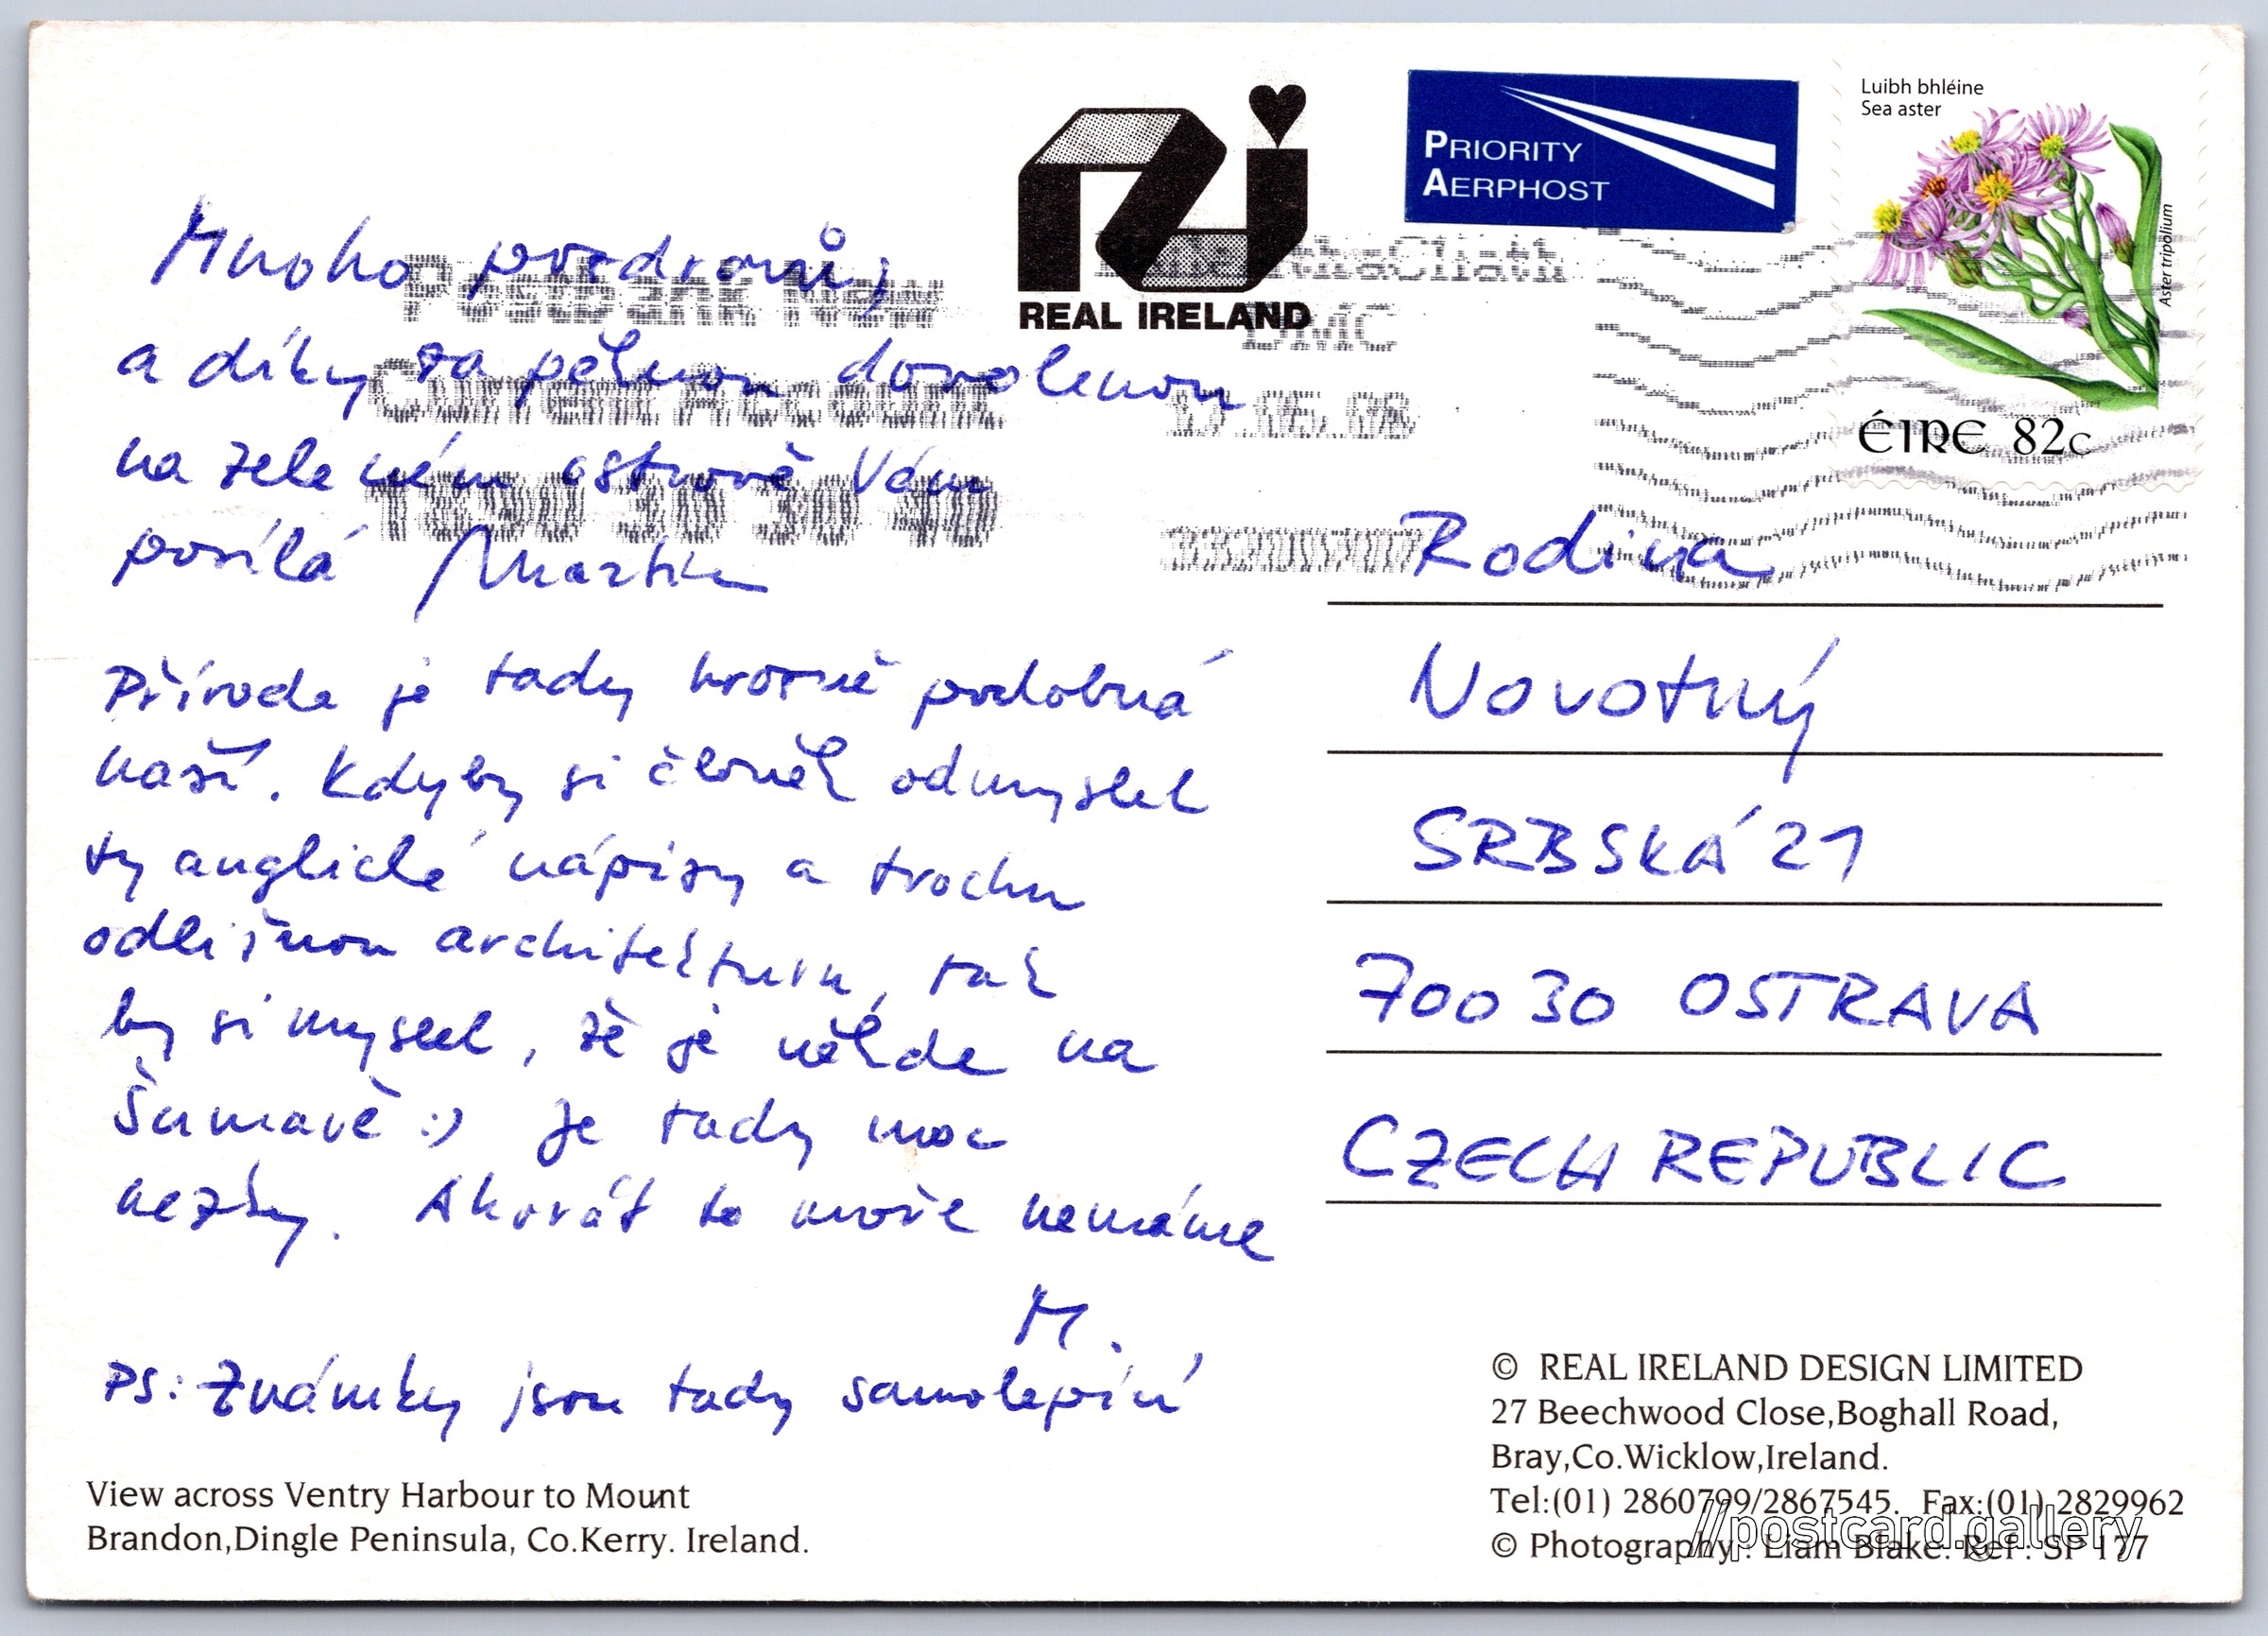 Mnoho pozdravů,
a díky za pěknou dovolenou
na zeleném ostrově Vám
posílá Martin
Příroda je tady hrozně podobná
naší. Kdyby si člověk odmyslel
ty anglické nápisy a trochu
odlišnou architekturu, tak
by si myslel, že je někde na
Šumavě :) Je tady moc
hezky. Akorát to moře nemáme
M.
PS: Známky jsou tady samolepící
View across Ventry Harbour to Mount
Brandon,Dingle Peninsula, Co.Kerry. Ireland.
REAL IRELAND
PRIORITY
AERPHOST
Luibh bhléine
Sea aster
Aster tripolium
ÉIRE 82c
Postbank New
Current Account
1850 30 30 30
DMC
Rodina
Novotný
SRBSKÁ 21
700 30 OSTRAVA
CZECH REPUBLIC
© REAL IRELAND DESIGN LIMITED
27 Beechwood Close,Boghall Road,
Bray,Co.Wicklow,Ireland.
Tel:(01) 2860799/2867545. Fax:(01) 2829962
© Photography : Liam Blake. Ref : SP 177
//postcard.gallery